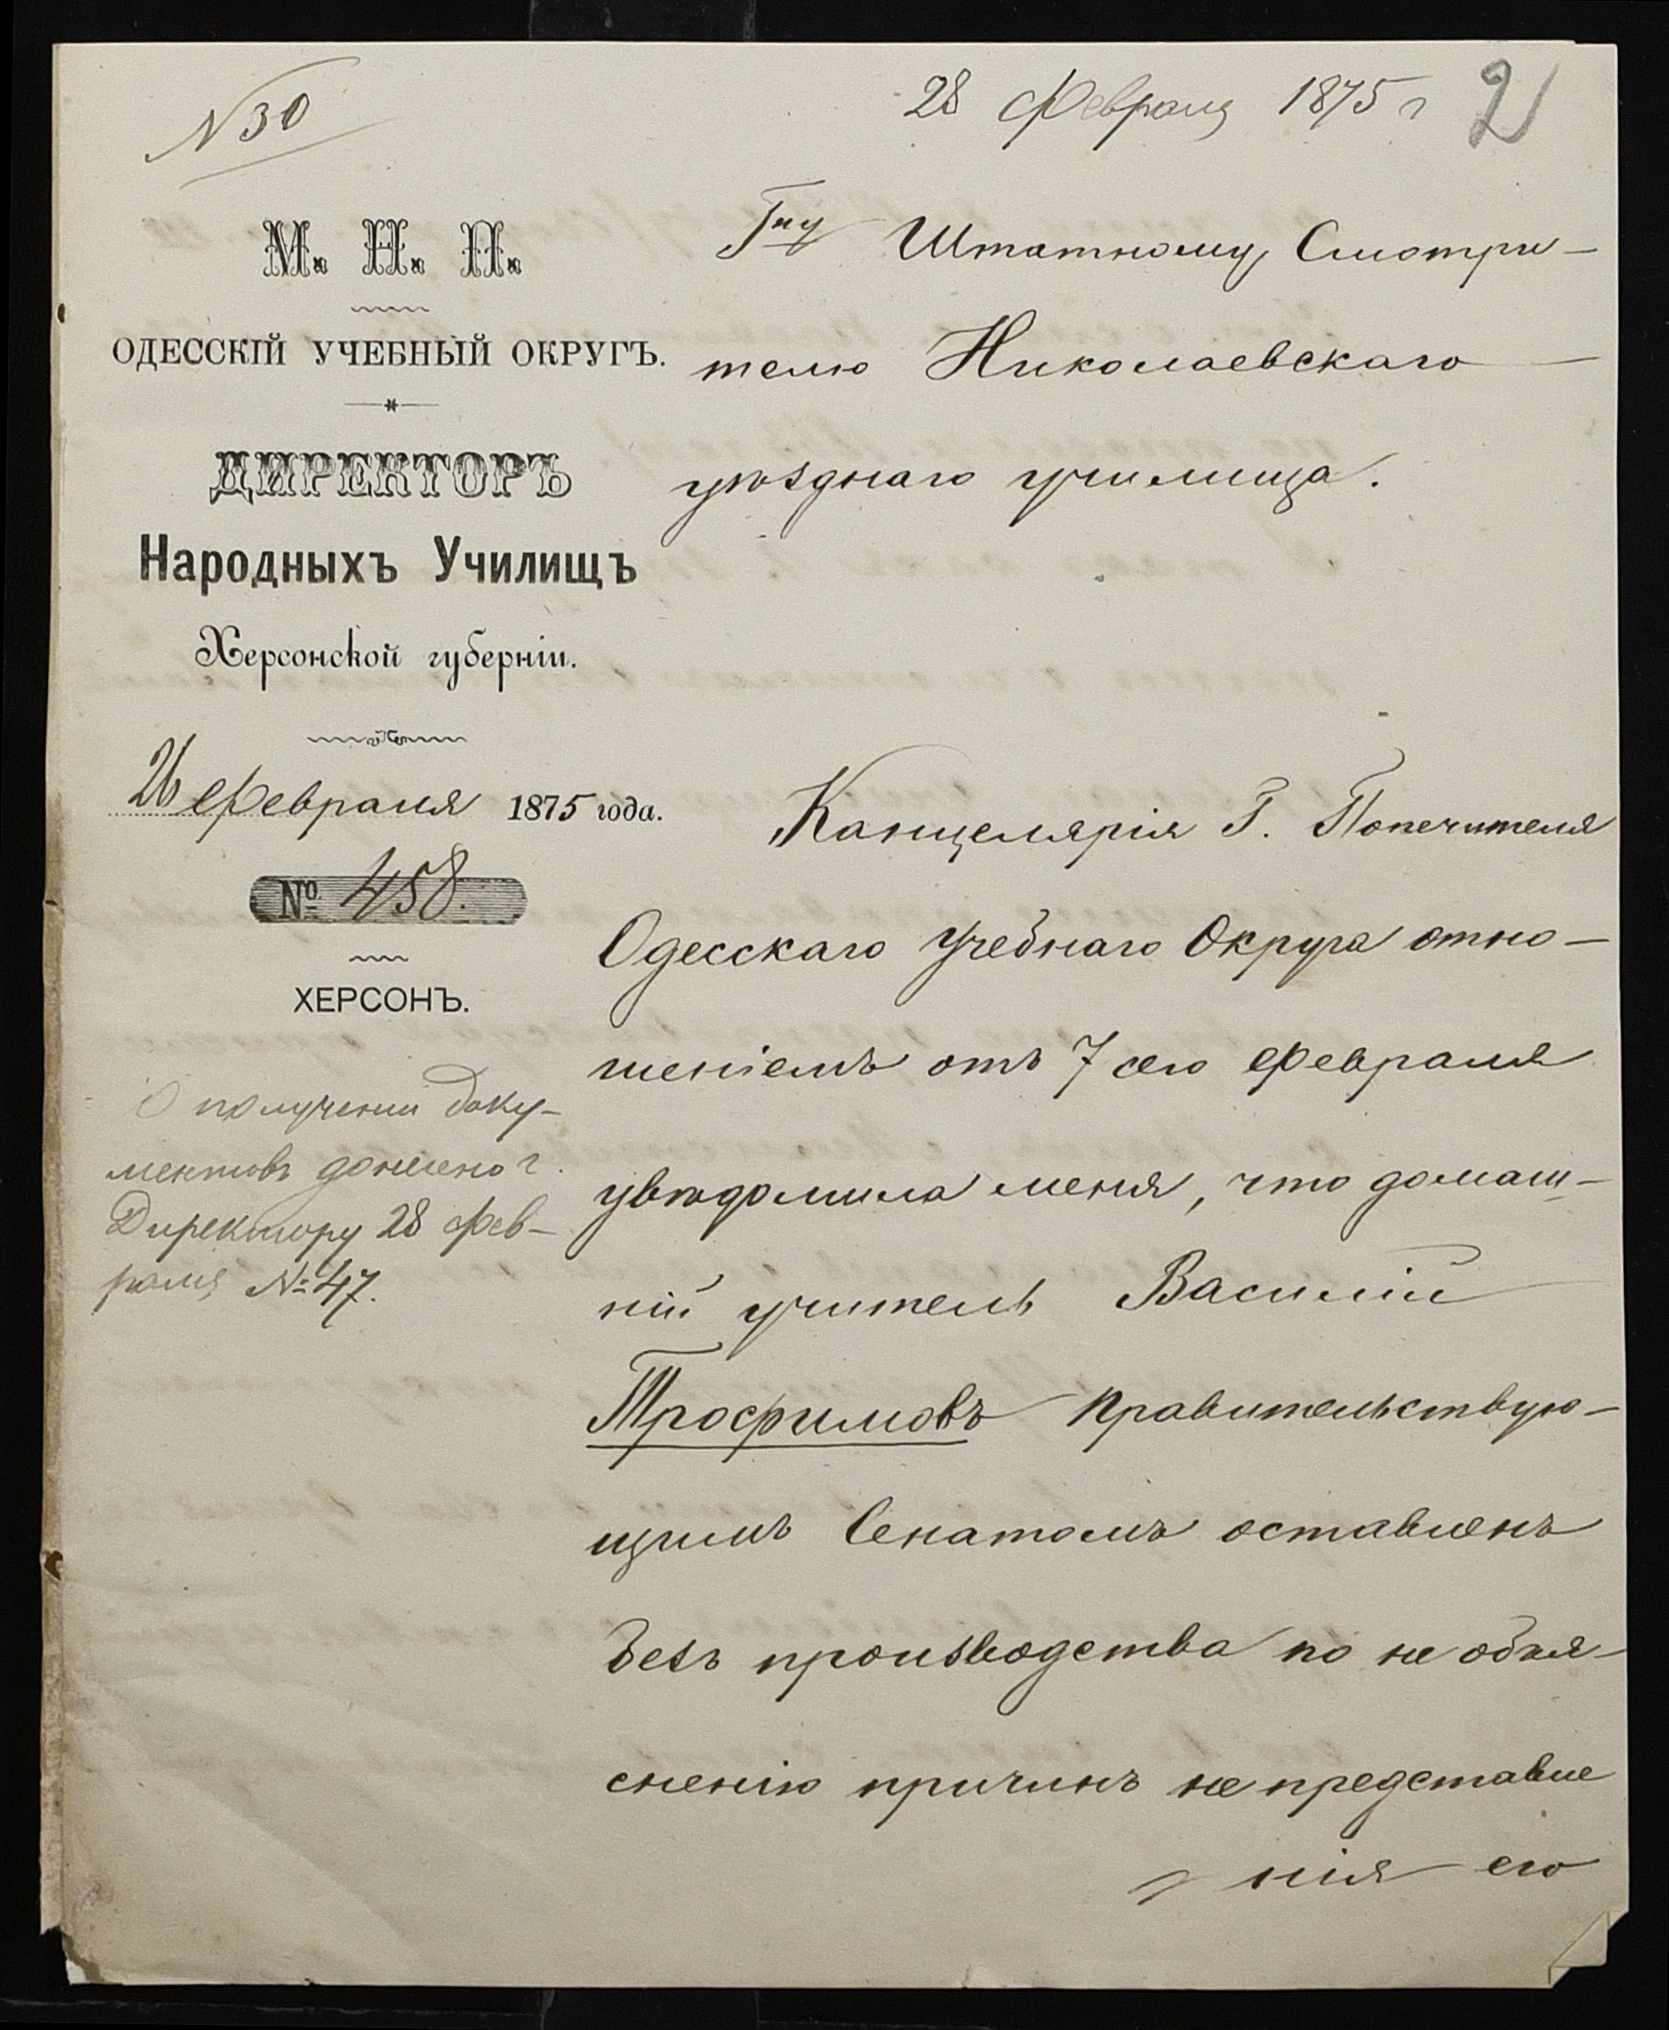 N 30
28 Февраля 1875 г
2
М. Н. П.
ОДЕССКІЙ УЧЕБНЫЙ ОКРУГЪ.
ДИРЕКТОРЪ
Народныхъ Училищъ
Херсонской губерніи.
26 Февраля 1875 года.
№ 458.
ХЕРСОНЪ.
О полученіи доку-
ментовъ донесено г.
Директору 28 Фев-
раля № 47.
Гну Штатному Смотри-
телю Николаевскаго
уѣзднаго училища.
Канцелярія Г. Попечителя
Одесскаго Учебнаго Округа отно-
шеніемъ отъ 7 сего Февраля
увѣдомила меня, что домаш-
ній учитель Василій
Трофимовъ Правительствую-
щимъ Сенатомъ оставленъ
безъ производства по не объя-
сненію причинъ не представле
нія его